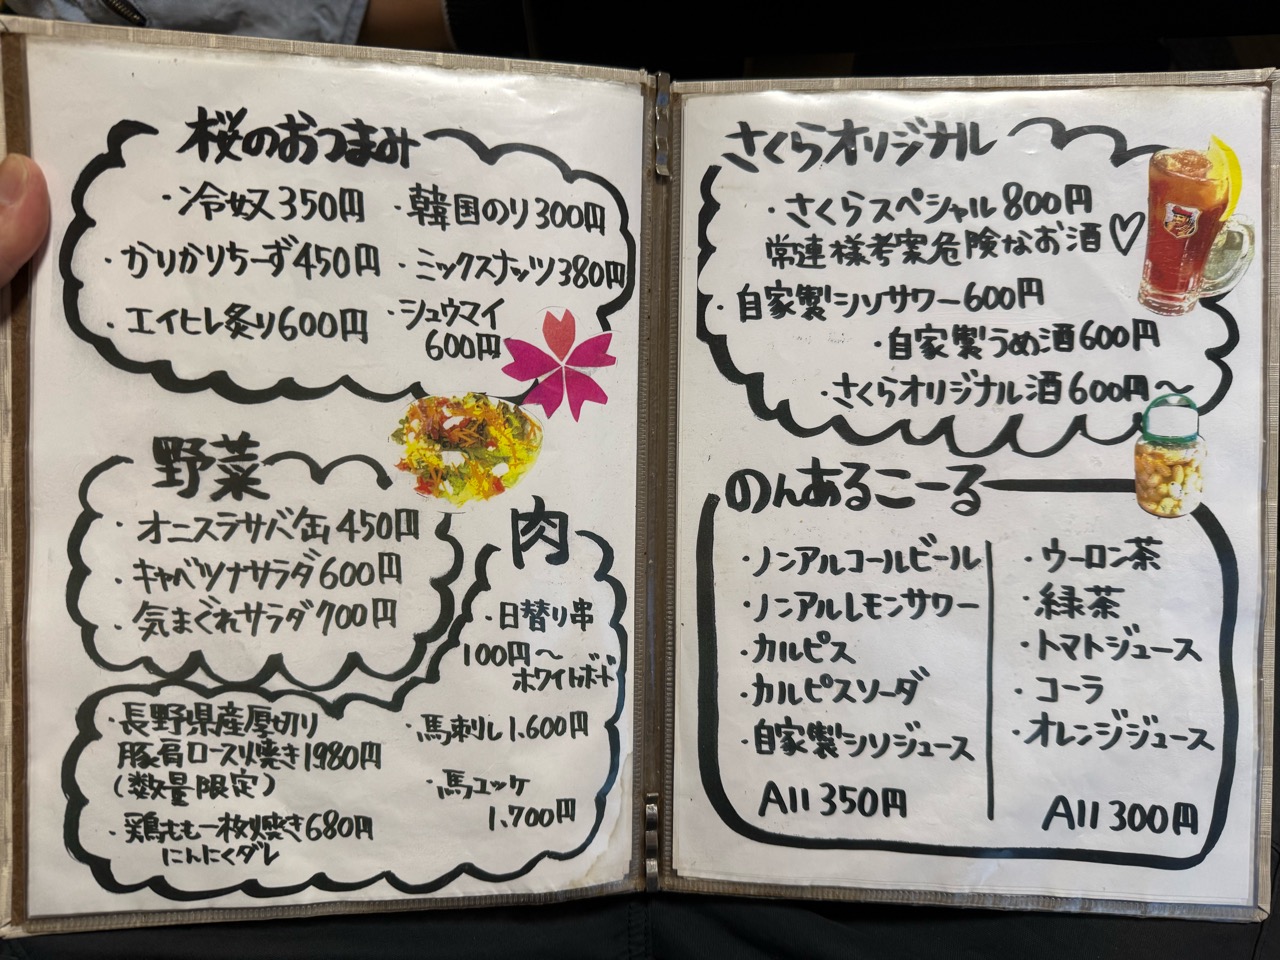 桜のおつまみ
・冷奴350円
・韓国のり300円
・かりかりちーず450円
・ミックスナッツ380円
・エイヒレ炙り600円
・シュウマイ
600円
野菜
・オニスラサバ缶450円
・キャベツナサラダ600円
・気まぐれサラダ700円
肉
・日替り串
100円〜
ホワイトボード
・長野県産厚切り
豚肩ロース焼き1980円
(数量限定)
・鶏もも一枚焼き680円
にんにくダレ
・馬刺し1,600円
・馬ユッケ
1,700円
さくらオリジナル
・さくらスペシャル800円
常連様考案危険なお酒♡
・自家製シソサワー600円
・自家製うめ酒600円
・さくらオリジナル酒600円〜
のんあるこーる
・ノンアルコールビール
・ノンアルレモンサワー
・カルピス
・カルピスソーダ
・自家製シソジュース
All 350円
・ウーロン茶
・緑茶
・トマトジュース
・コーラ
・オレンジジュース
All 300円